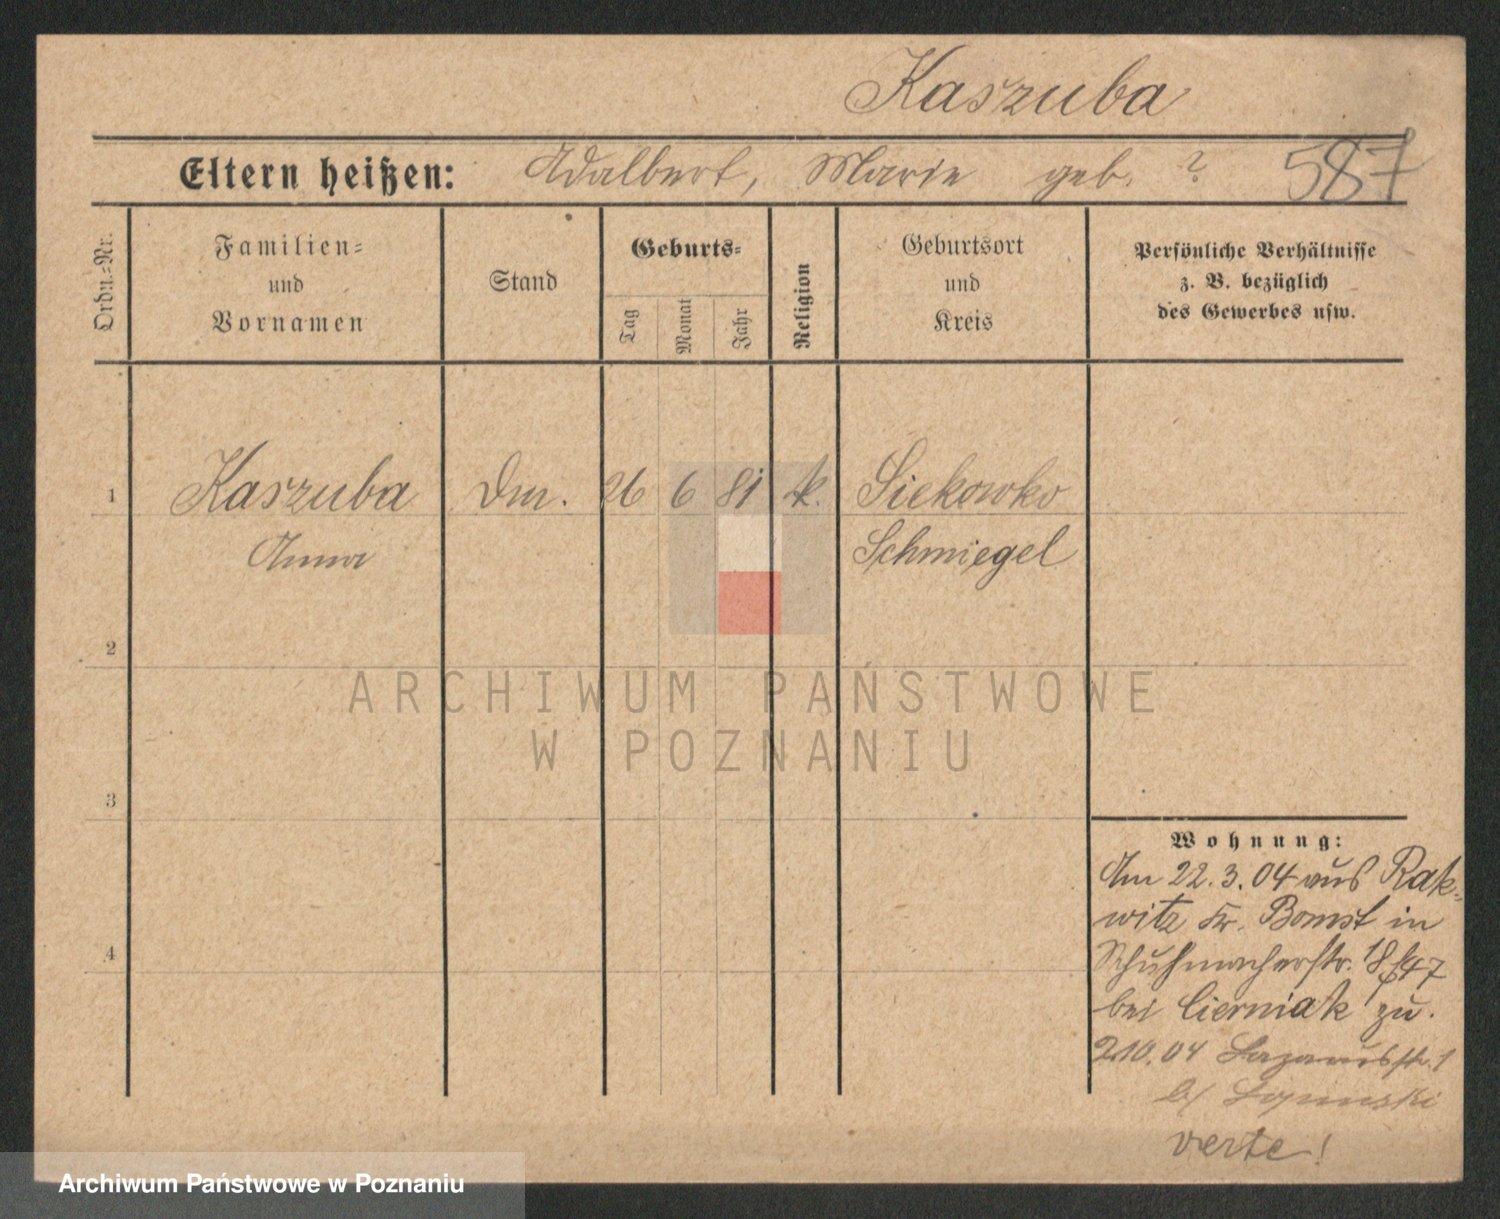 Kaszuba
Eltern heißen: Adalbert, Marie geb. ? 587
Ordn.-Nr.
Familien-
und
Vornamen
Stand
Geburts-
Tag
Monat
Jahr
Religion
Geburtsort
und
Kreis
Persönliche Verhältnisse
z. B. bezüglich
des Gewerbes usw.
1 Kaszuba Dm. 26 6 81 k. Siekowko
Anna Schmiegel
2
3
4
Wohnung:
Am 22.3.04 aus Rak-
witz Kr. Bomst in
Schuhmacherstr. 18
bei Cierniak zu.
2.10.04
b/
verte!
ARCHIWUM PAŃSTWOWE
W POZNANIU
Archiwum Państwowe w Poznaniu